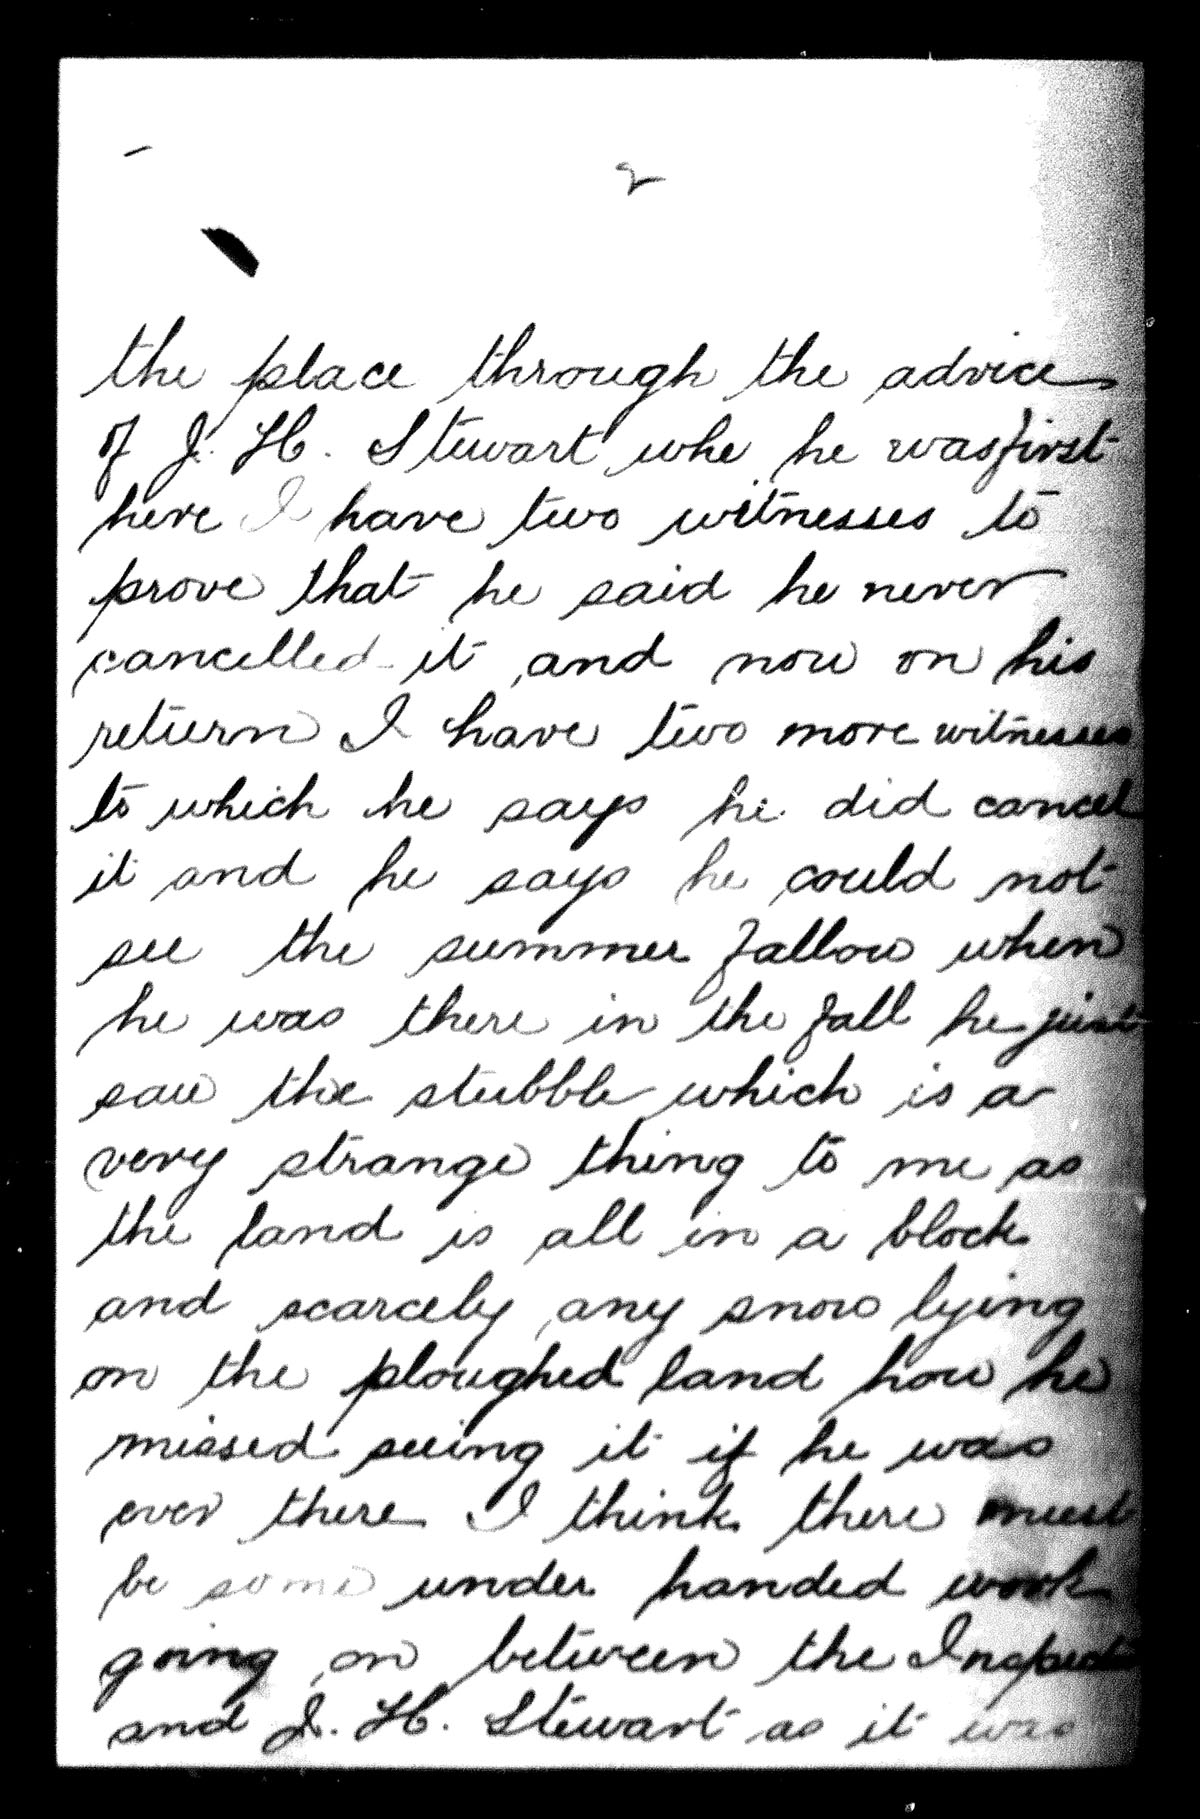 2
the place through the advice
of J. H. Stewart whe he was first
here I have two witnesses to
prove that he said he never
cancelled it and now on his
return I have two more witnesses
to which he says he did cancel
it and he says he could not
see the summer fallow when
he was there in the fall he just
saw the stubble which is a
very strange thing to me as
the land is all in a block
and scarcely any snow lying
on the ploughed land how he
missed seeing it if he was
ever there I think there must
be some under handed work
going on between the
and J. H. Stewart as it was